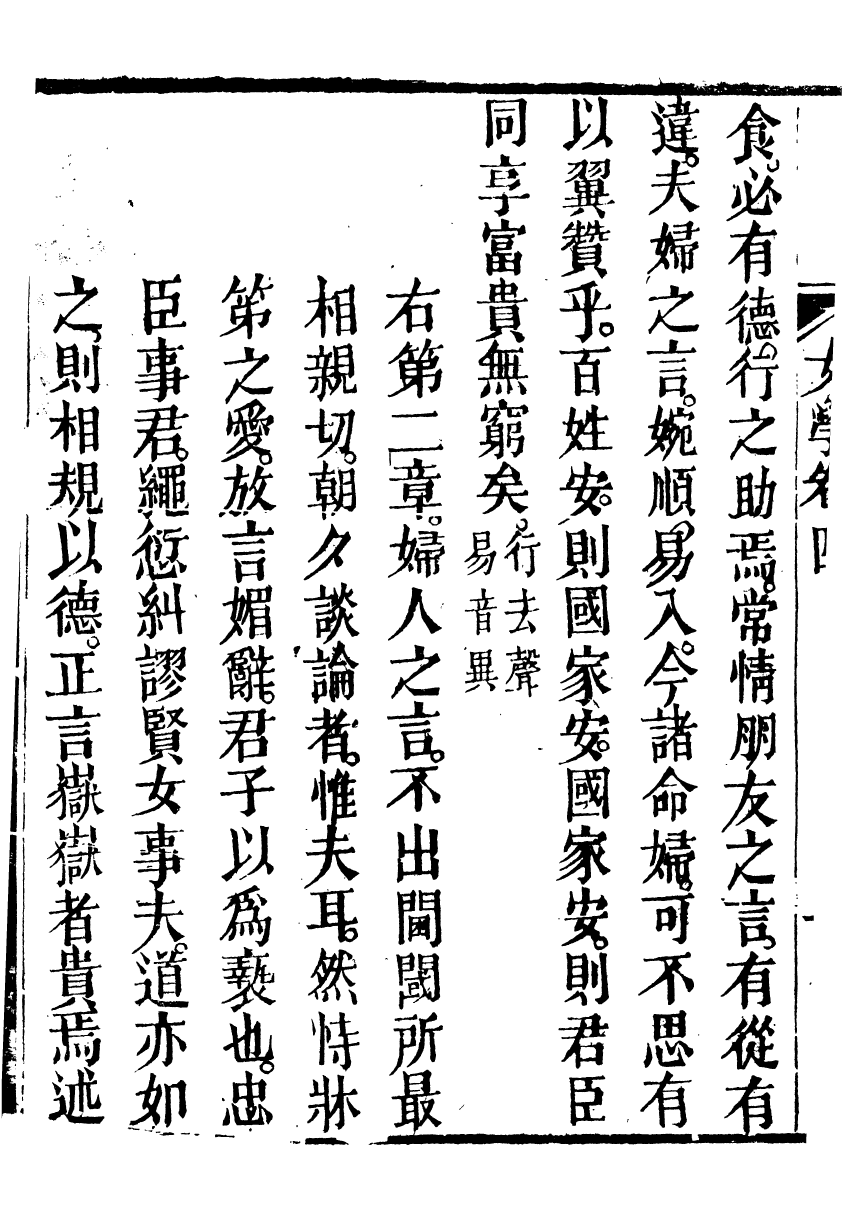 食。必有德。行之助焉。常情朋友之言。有從有
違。夫婦之言。婉順易入。今諸命婦。可不思有
以翼贊乎。百姓安。則國家安。國家安。則君臣
同享富貴無窮矣。行去聲易音異
右第二章。婦人之言。不出閫閾所最
相親切。朝夕談論者。惟夫耳。然恃牀
笫之愛。放言媚辭。君子以爲褻也。忠
臣事君。繩愆糾謬賢女事夫。道亦如
之。則相規以德。正言嶽嶽者貴焉述
女學卷四